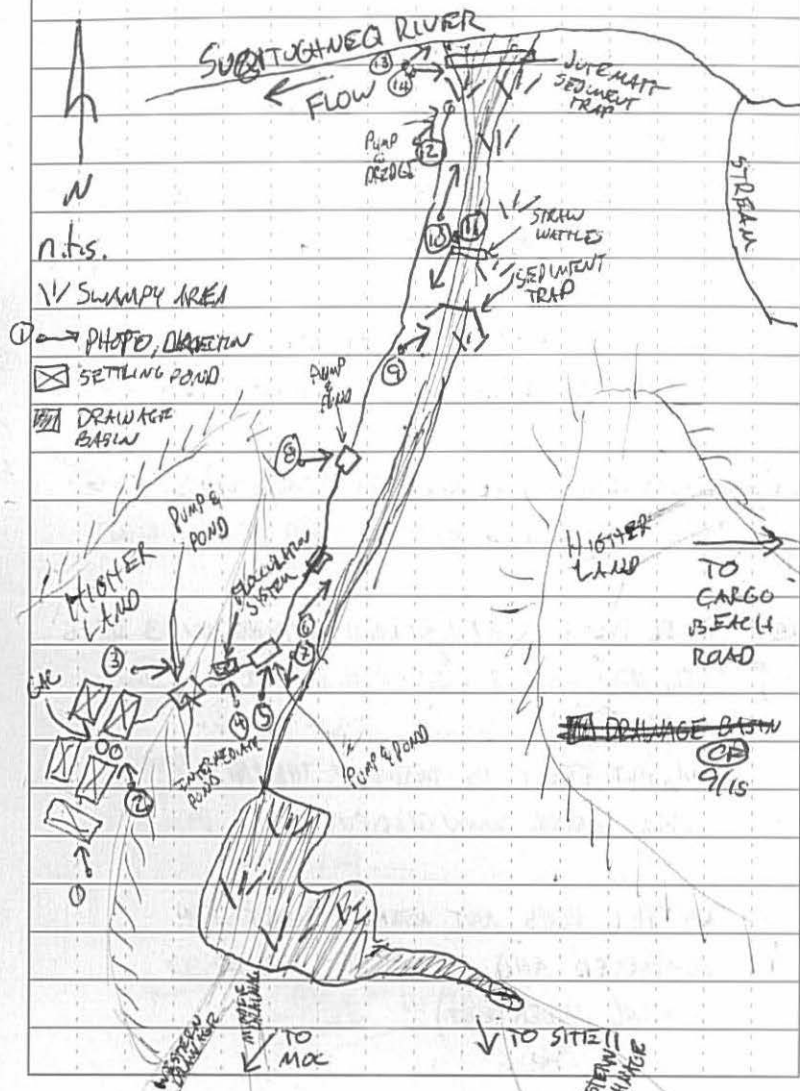 SUQITUGHNEQ RIVER
FLOW
13
14
JUTE MATT
SEDIMENT
TRAP
STREAM
PUMP
&
DREDGE
12
N
n.t.s.
\|/ SWAMPY AREA
1 PHOTO, DIRECTION
SETTLING POND
DRAINAGE
BASIN
10
11
STRAW
WATTLES
SEDIMENT
TRAP
9
PUMP
&
POND
8
PUMP &
POND
HIGHER
LAND
FLOCCULATION
SYSTEM
HIGHER
LAND
TO
CARGO
BEACH
ROAD
3
6
7
GAC
4
5
INTERMEDIATE
POND
PUMP & POND
2
1
DRAINAGE BASIN
9/15
WESTERN
DRAINAGE
MIDDLE
DRAINAGE
TO
MOC
TO SITE 11